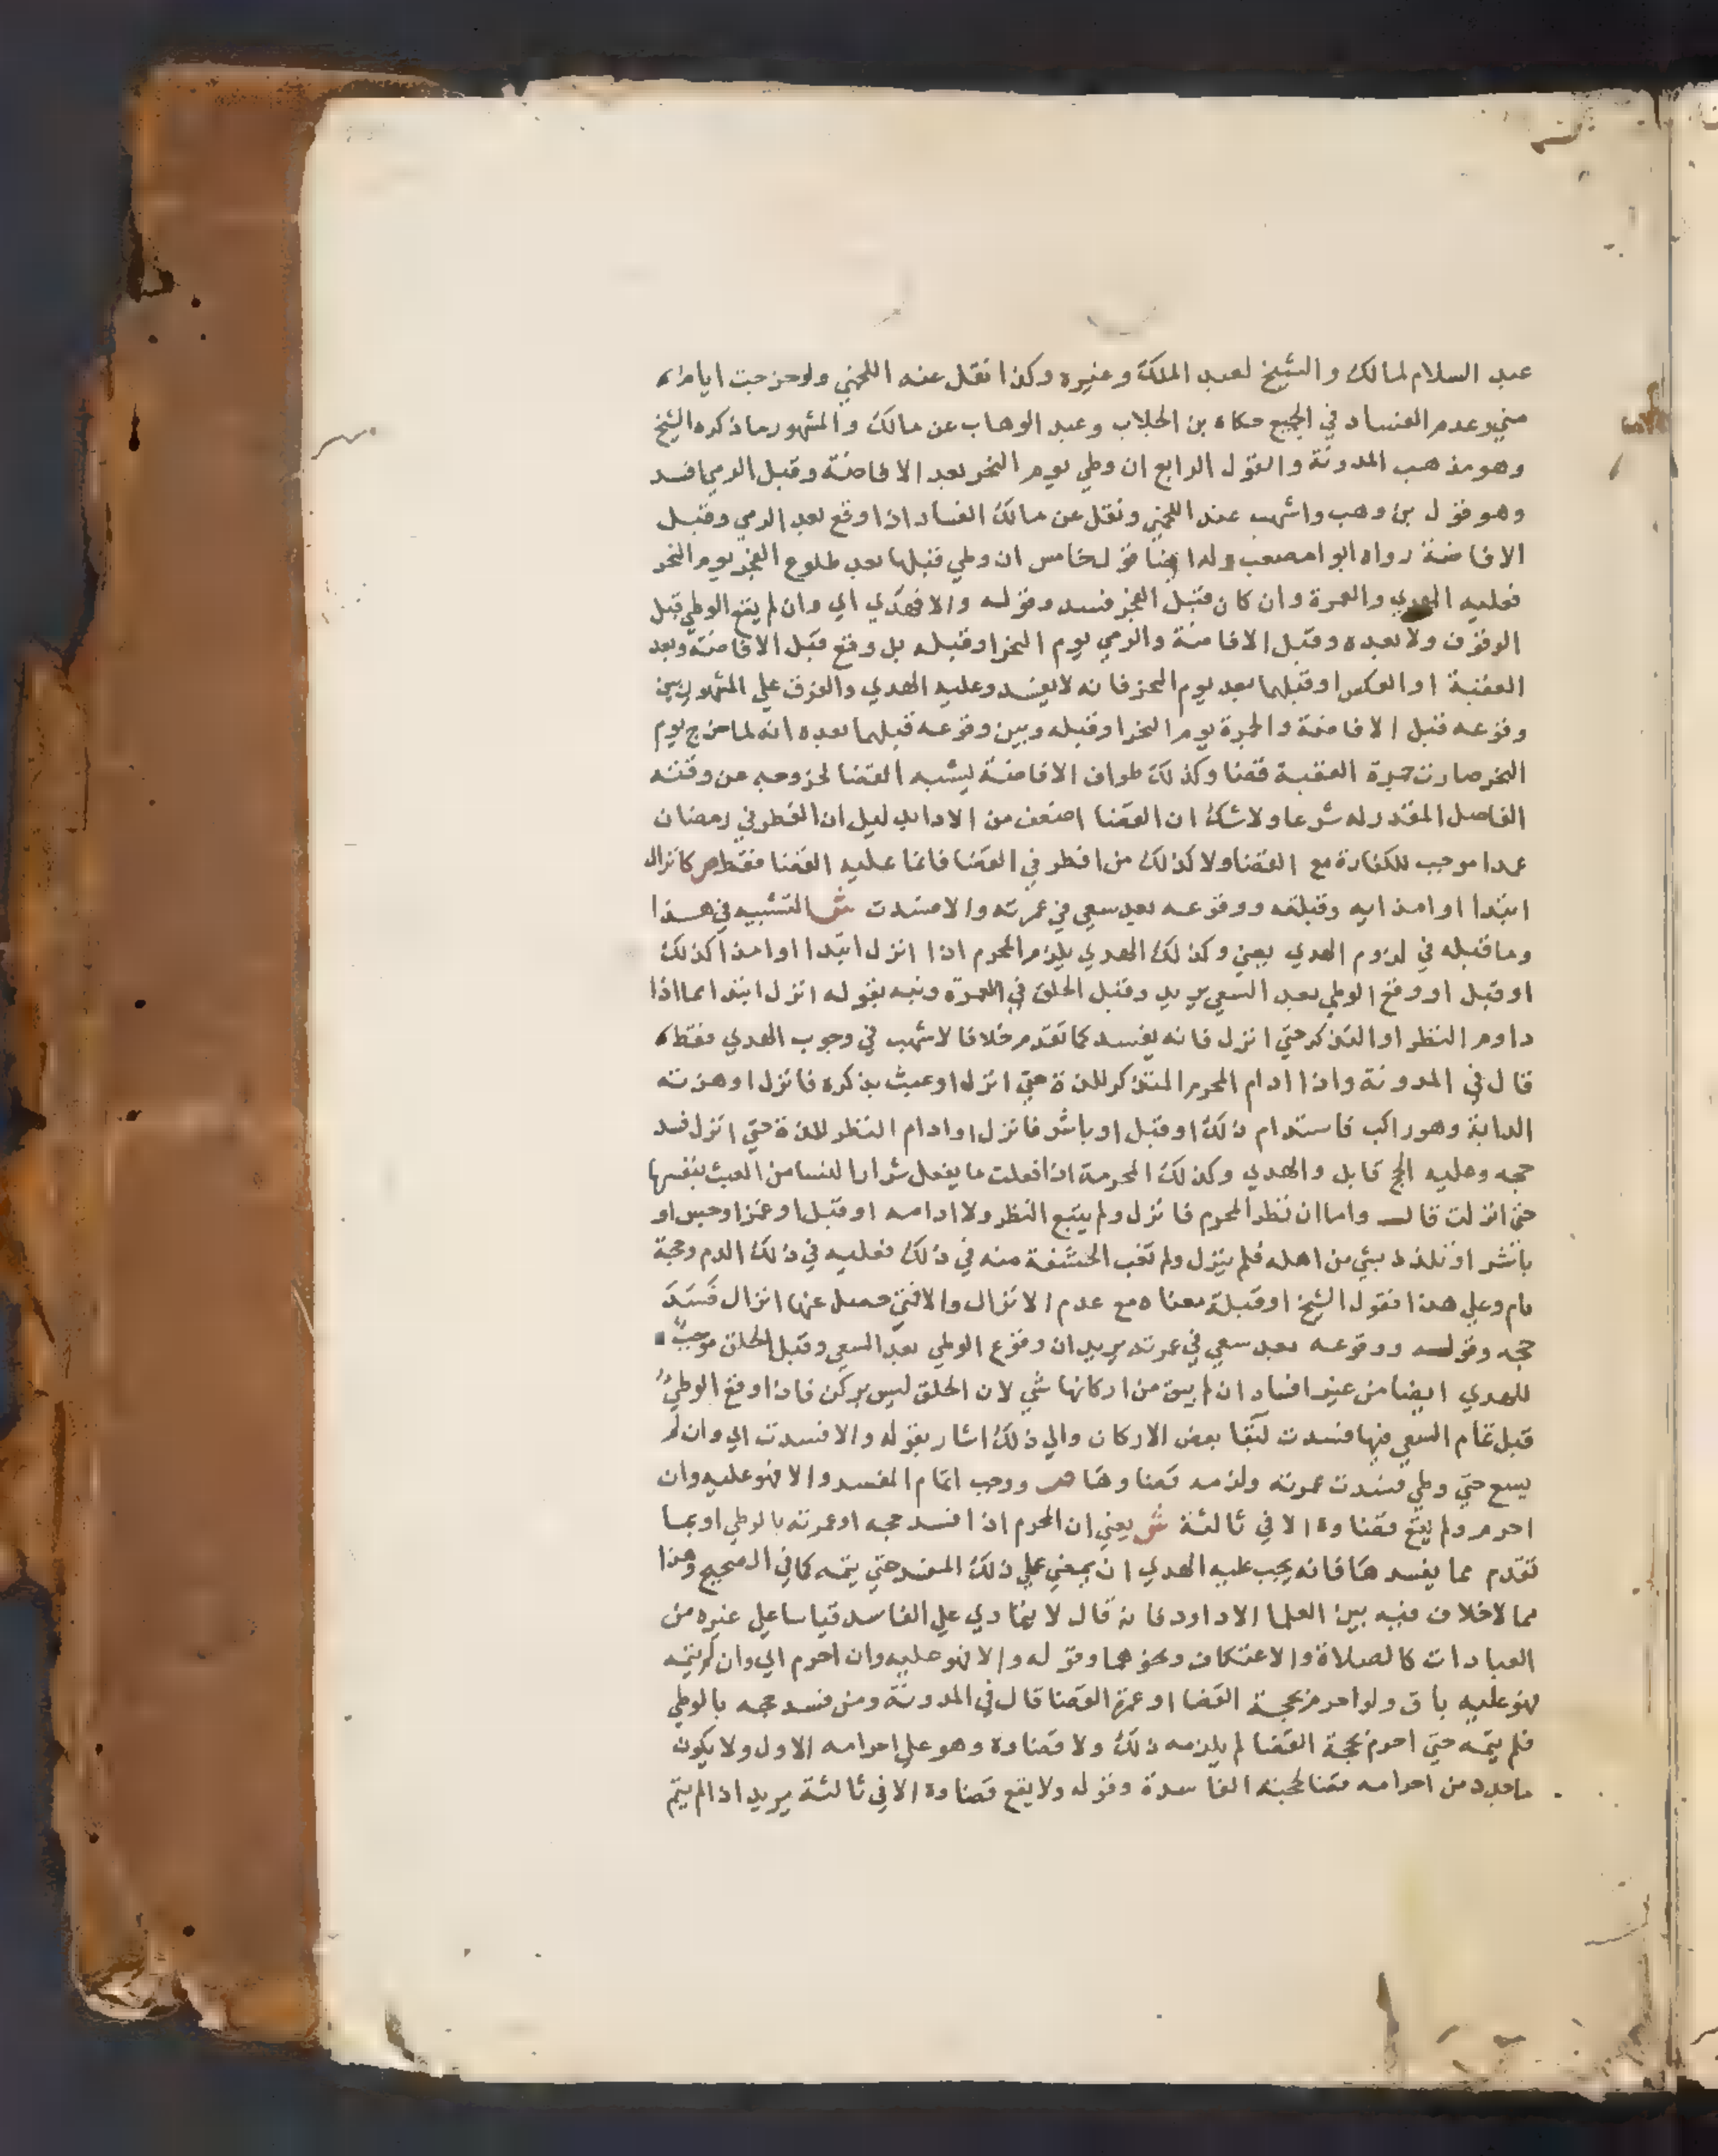 عبد السلام لمالك والشيخ لعبد الملك وغيره وكذا نقل عنه اللخمي ولو خرجت ايام
مني وعدم الفساد في الجميع حكاه بن الجلاب وعبد الوهاب عن مالك والمشهور ما ذكره الشيخ
وهو مذهب المدونة والقول الرابع ان وطي يوم النحر بعد الافاضة وقبل الرمي افسد
وهو قول بن وهب واشهب عند اللخمي ونقل عن مالك الفساد اذا وقع بعد الرمي وقبل
الافاضة رواه ابوا مصعب وله ايضا قول خامس ان وطي قبلها بعد طلوع الفجر يوم النحر
فعليه الهدي والعمرة وان كان قبل الفجر فسد وقوله والا فهدي اي وان لم يقع الوطي قبل
الوقوف ولا بعده وقبل الافاضة والرمي يوم النحر او قبله بل وقع قبل الافاضة وبعد
العقبة او العكس او قبلهما بعد يوم النحر فانه لا يفسد وعليه الهدي والفرق علي المشهور بين
وقوعه قبل الافاضة والجمرة يوم النحر او قبله وبين وقوعه قبلهما بعده انه لما خرج يوم
النحر صارت جمرة العقبة قضا وكذلك طواف الافاضة يشبه القضا لخروجه عن وقته
الفاصل المقدر له شرعا ولا شك ان القضا اضعف من الادا بدليل ان الفطر في رمضان
عمدا موجب للكفارة مع القضا ولا كذلك من افطر في القضا فانما عليه القضا فقط ص كانزال
ابتدا او امذايه وقبلته ووقوعه بعد سعي في عمرته والا فسدت ش التشبيه في هذا
وما قبله في لزوم الهدي يعني وكذلك الهدي يلزم المحرم اذا انزل ابتدا او امذا كذلك
او قبل او وقع الوطي بعد السعي يريد وقبل الحلق في العمرة ونبه بقوله انزل ابتدا عما اذا
داوم النظر او التذكر حتي انزل فانه يفسد كما تقدم خلافا لاشهب في وجوب الهدي فقط
قال في المدونة واذا ادام المحرم المتذكر للذة حتي انزل او عبث بذكره فانزل او هزته
الدابة وهو راكب فاستدام ذلك او قبل او باشر فانزل او ادام النظر للذة حتي انزل فسد
حجه وعليه الحج قابل والهدي وكذلك المحرمة اذا فعلت ما يفعل شرار النسا من العبث بنفسها
حتي انزلت قال واما ان نظر المحرم فانزل ولم يتبع النظر ولا ادامه او قبل او غمز او جس او
باشر او تلذذ بشي من اهله فلم ينزل ولم تغب الحشفة منه في ذلك فعليه في ذلك الدم وحجة
تام وعلي هذا فقول الشيخ او قبلة معناه مع عدم الانزال والا فمتي حصل عنها انزال فسد
حجه وقوله ووقوعه بعد سعي في عمرته يريد ان وقوع الوطي بعد السعي وقبل الحلق موجب
للهدي ايضا من غير افساد ان لم يبق من اركانها شي لان الحلق ليس بركن فاذا وقع الوطي
قبل تمام السعي فيها فسدت لبقا بعض الاركان والي ذلك اشار بقوله والا فسدت اي وان لم
يسع حتي وطي فسدت عمرته ولزمه قضاوها ص ووجب اتمام المفسد والا فهو عليه وان
احرم ولم يقع قضاوه الا في ثالثة ش يعني ان المحرم اذا افسد حجه او عمرته بالوطي او بما
تقدم مما يفسدها فانه يجب عليه الهدي ان يمضي علي ذلك المفسد حتي يتمه كما في الصحيح وهذا
مما لا خلاف فيه بين العلما الا داود فانه قال لا يتمادي علي الفاسد قياسا علي غيره من
العبادات كالصلاة والاعتكاف ونحوهما وقوله والا فهو عليه وان احرم اي وان لم يتمه
فهو عليه باق ولو احرم بحجة القضا او عمرة القضا قال في المدونة ومن فسد حجه بالوطي
فلم يتمه حتي احرم بحجة القضا لم يلزمه ذلك ولا قضاوه وهو علي احرامه الاول ولا يكون
ما جدد من احرامه قضا لحجته الفاسدة وقوله ولا يقع قضاوه الا في ثالثة يريد اذا لم يتم